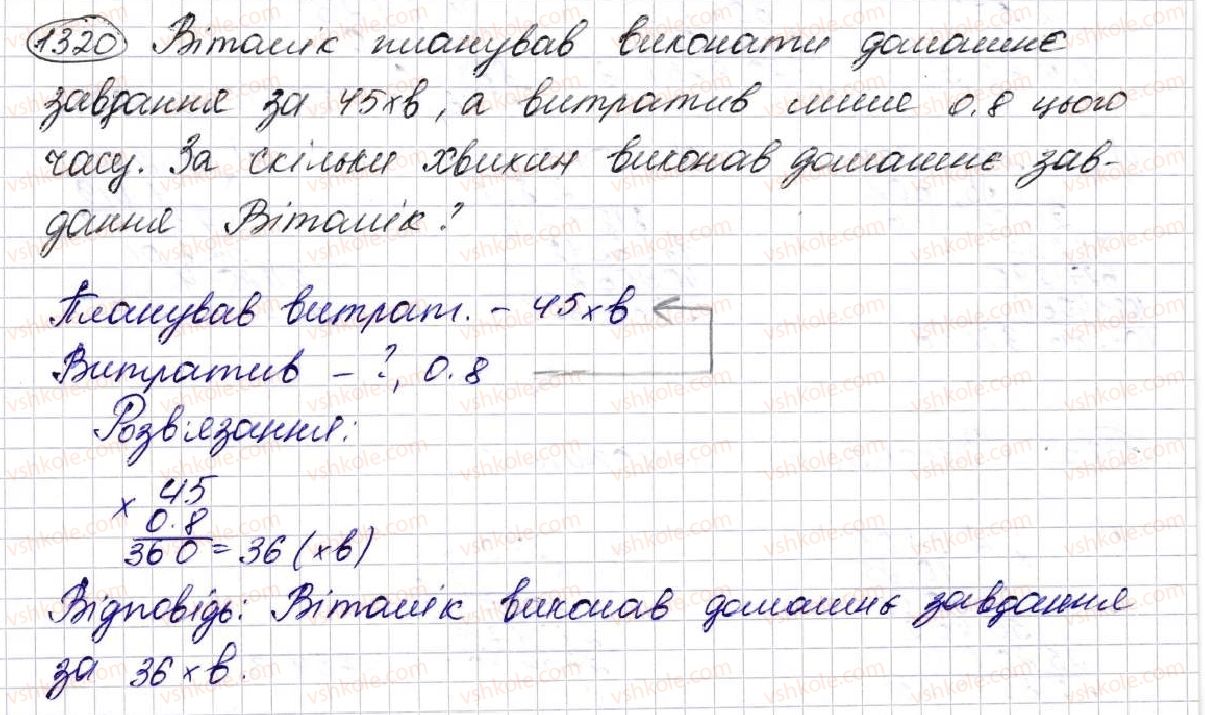 1320 Віталік планував виконати домашнє
завдання за 45 хв, а витратив лише 0.8 цього
часу. За скільки хвилин виконав домашнє зав-
дання Віталік?
Планував витрат. - 45 хв
Витратив - ?, 0.8
Розв'язання:
× 45
0.8
360 = 36 (хв)
Відповідь: Віталік виконав домашнє завдання
за 36 хв.